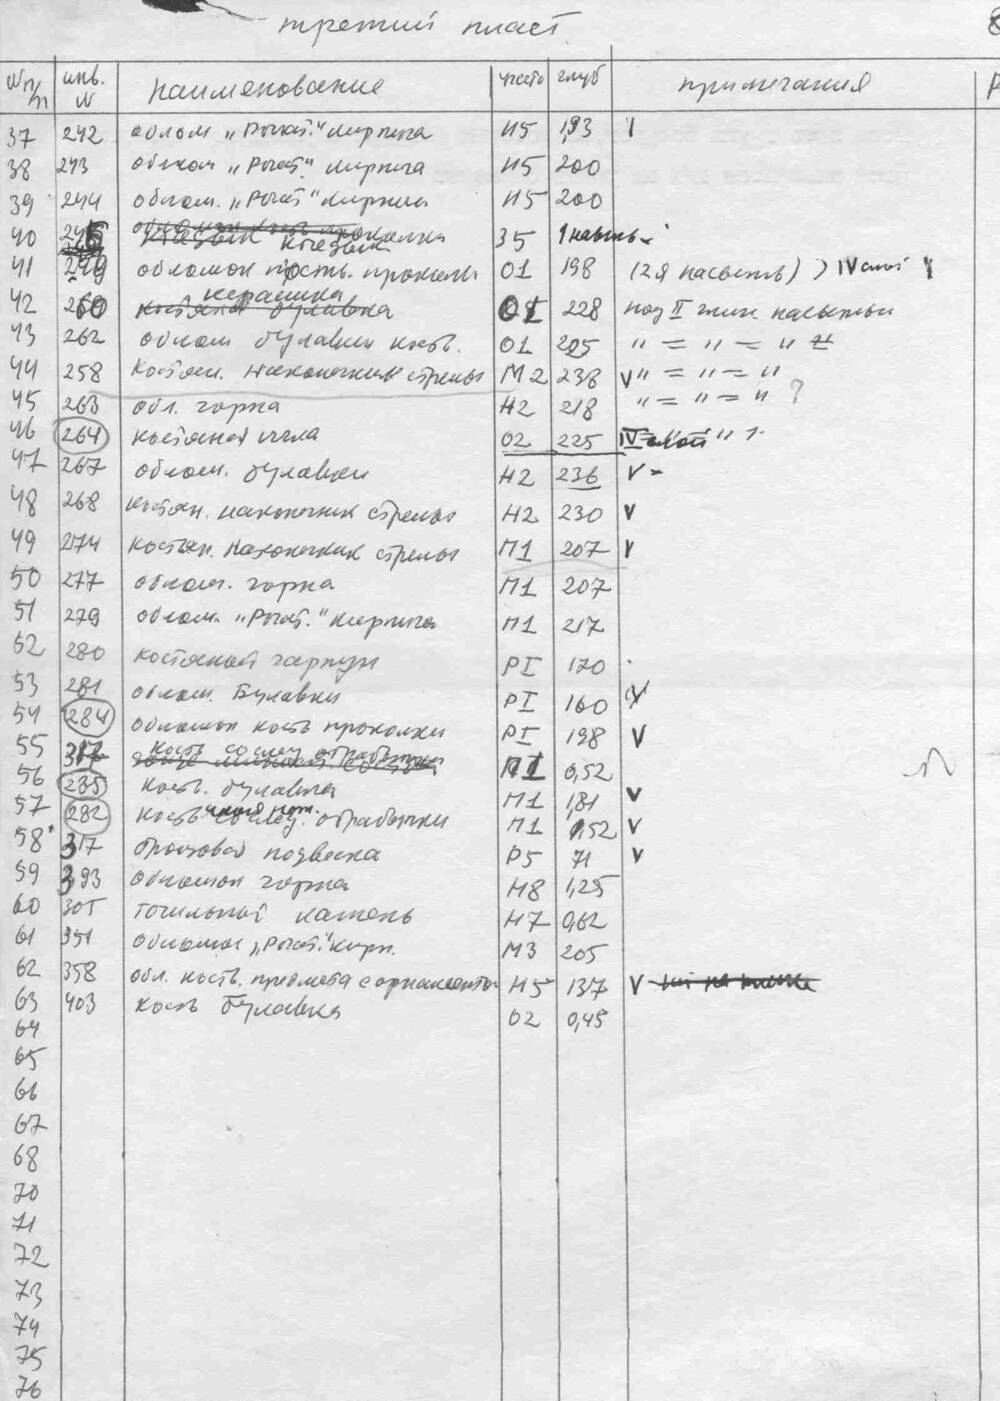 третий пласт
8
№ п/п инв. N наименование участ глуб примечания
37 242 облом „Рогат." кирпича И5 1,93 V
38 243 облом „Рогат." кирпича И5 200
39 244 облом. „Рогат" кирпича И5 200
40 костян. прокалка З5 1 насыпь
41 249 обломок кость. проколки О1 198 (2я насыпь) IV слой V
42 260 костяная булавка керамика О1 228 под II глин. насыпью
43 262 облом булавки кость. О1 205 " = " = "
44 258 Костян. наконечник стрелы М2 238 V " = " = "
45 263 обл. горна Н2 218 " = " = " ?
46 264 костяная игла О2 225 IV слой "
47 267 облом. булавки Н2 236 V -
48 268 костян. наконечник стрелы Н2 230 V
49 274 костян. наконечник стрелы П1 207 V
50 277 облом. горна П1 207
51 279 облом. „Рогат." кирпича П1 217
52 280 костяной гарпун РI 170
53 281 облом. Булавки РI 160 V
54 284 обломок кость проколки РI 198 V
55 317 кость со след обработки П1 0,52
56 235 кость. булавка П1 1,81 V
57 282 кость со след. обработки П1 1,52 V
58 317 бронзовая подвеска Р5 71 V
59 393 обломок горна Н8 1,25
60 305 точильный камень Н7 0,62
61 351 обломок „Рогат." кирп. М3 205
62 358 обл. кость. предмета с орнаментом Н5 137 V
63 403 кость булавка О2 0,45
64
65
66
67
68
70
71
72
73
74
75
76